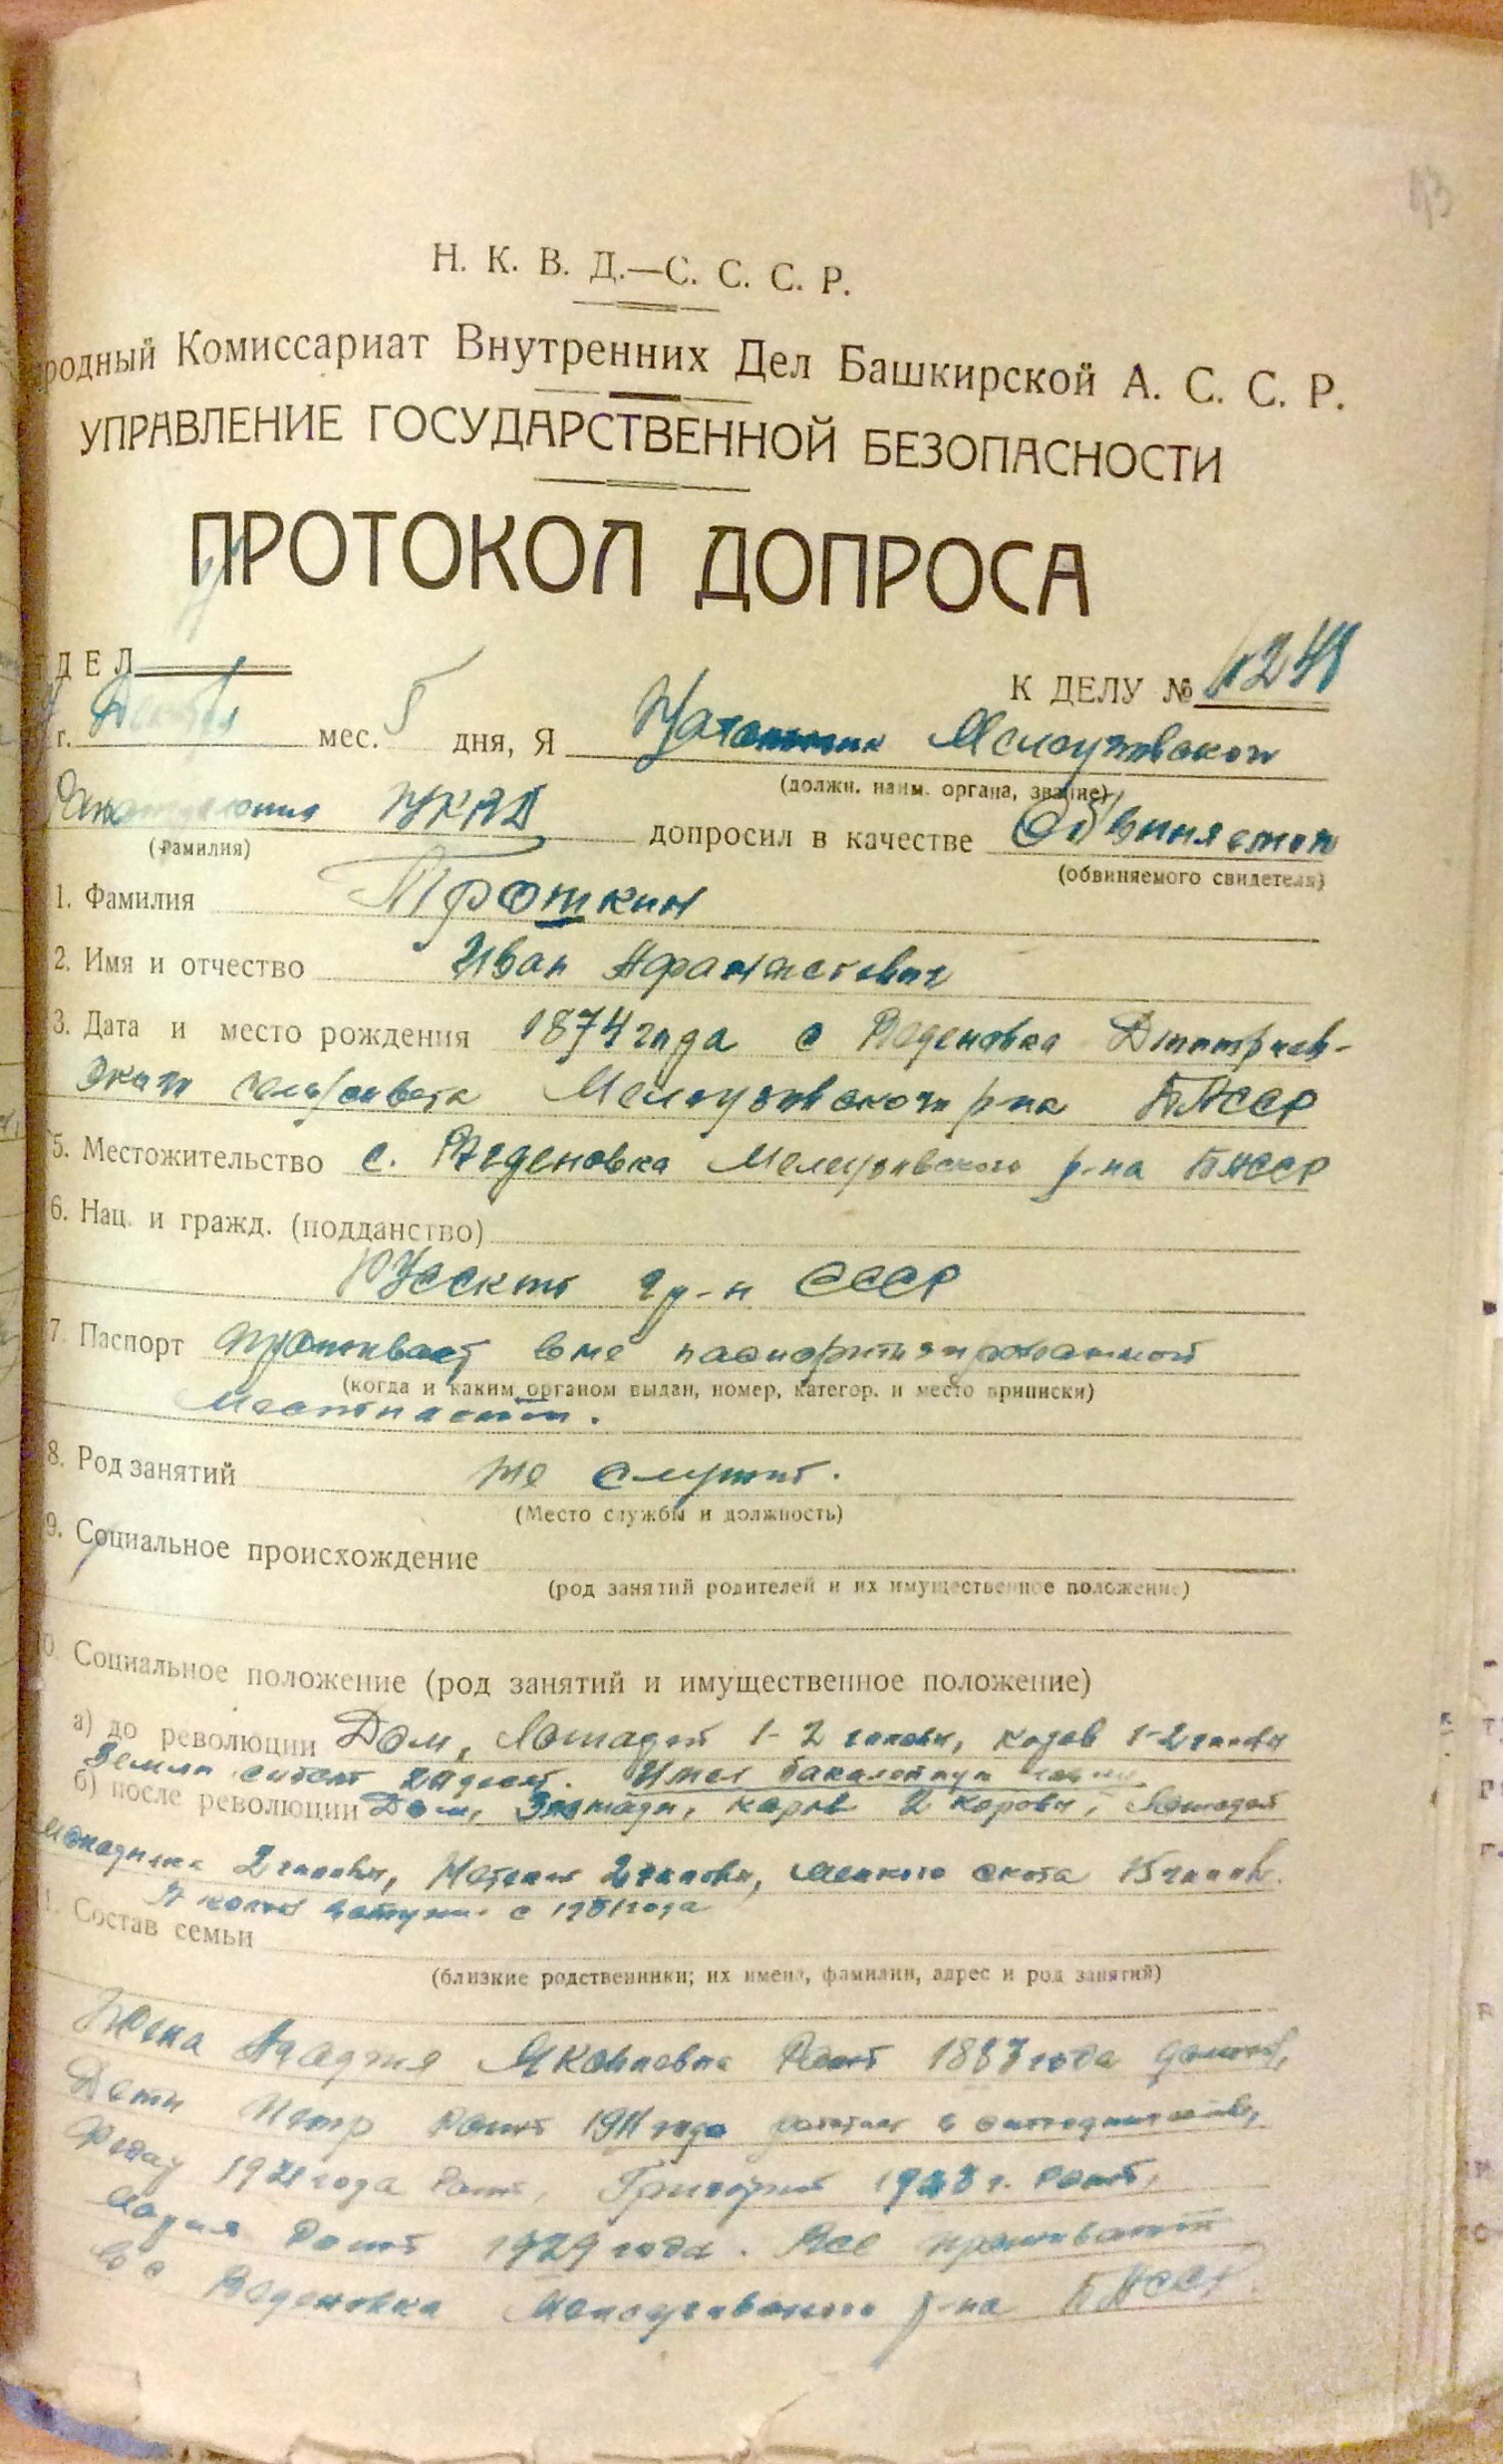 Н. К. В. Д.—С. С. С. Р.
родный Комиссариат Внутренних Дел Башкирской А. С. С. Р.
УПРАВЛЕНИЕ ГОСУДАРСТВЕННОЙ БЕЗОПАСНОСТИ
ПРОТОКОЛ ДОПРОСА
ДЕЛ
К ДЕЛУ №
г. мес. 5 дня, Я Начальник Мелеузовского
(должн. наим. органа, звание)
НКВД допросил в качестве Обвиняемого
(фамилия) (обвиняемого свидетеля)
1. Фамилия Трошкин
2. Имя и отчество Иван Афанасьевич
3. Дата и место рождения 1874 года с Веденовка Дмитриев-
ского сельсовета Мелеузовского р-на БАССР
5. Местожительство с. Веденовка Мелеузовского р-на БАССР
6. Нац. и гражд. (подданство)
Русский гр-н СССР
7. Паспорт Проживает вне паспортизированной
(когда и каким органом выдан, номер, категор. и место приписки)
местности.
8. Род занятий не служит.
(Место службы и должность)
9. Социальное происхождение
(род занятий родителей и их имущественное положение)
0. Социальное положение (род занятий и имущественное положение)
а) до революции Дом, Лошадей 1-2 головы, коров 1-2 головы
Земли Имел бакалейную
б) после революции Дом, коров 2 коровы, Лошадей
2 головы, 2 головы, мелкого скота 15 голов.
В колхоз с года
1. Состав семьи
(близкие родственники; их имена, фамилии, адрес и род занятий)
Жена Яковлевна Рожд 1883 года
Дети Петр Рожд 1911 года
1921 года Рожд, Григорий г. рожд,
Мария Рожд 1929 года. Все проживают
в с Веденовка Мелеузовского р-на БАССР.